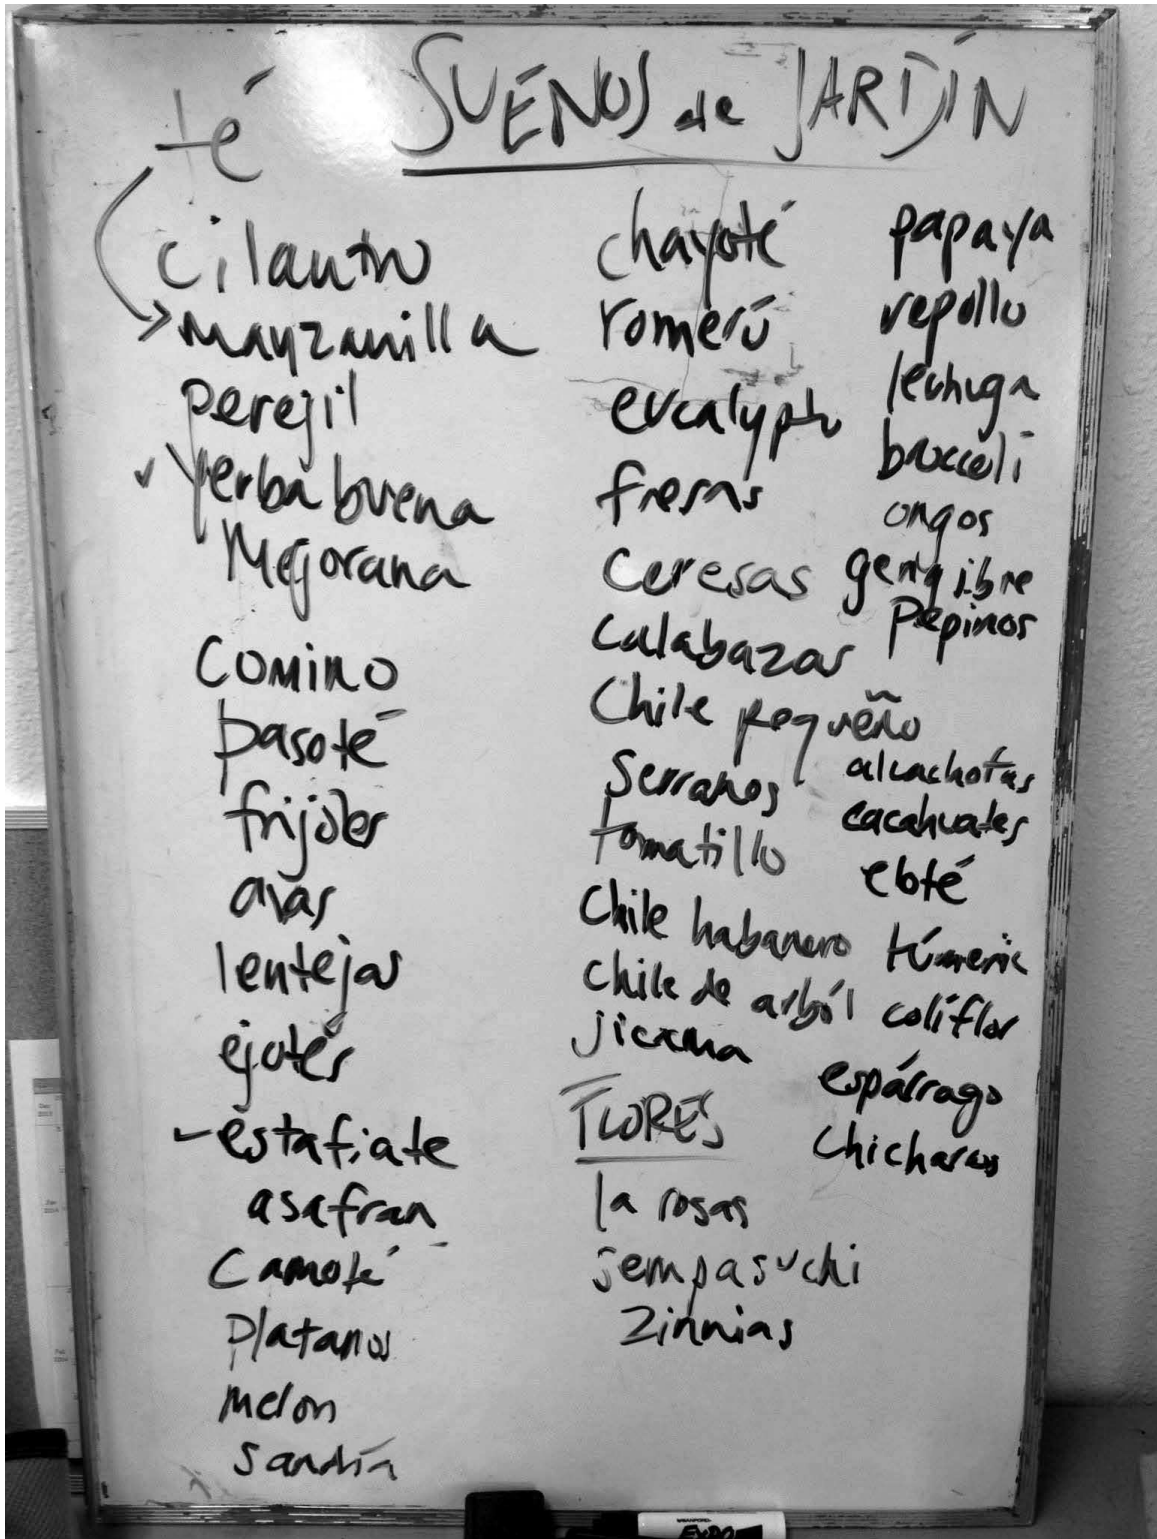 té
SUEÑOS de JARDÍN
cilantro
manzanilla
perejil
yerba buena
Mejorana
Comino
pasoté
frijoles
avas
lentejas
ejotés
estafiate
asafran
Camoté
Platanos
Melon
Sandía
chayoté
romeró
eucalypto
fresas
Ceresas
Calabazas
Chile pequeño
Serranos
tomatillo
Chile habanero
Chile de arból
jicama
FLORES
la rosas
sempasuchi
Zinnias
papaya
repollo
lechuga
broccoli
ongos
gengibre
Pepinos
alcachofas
cacahuates
eloté
túmeric
colíflor
espárrago
Chicharos
EXPO